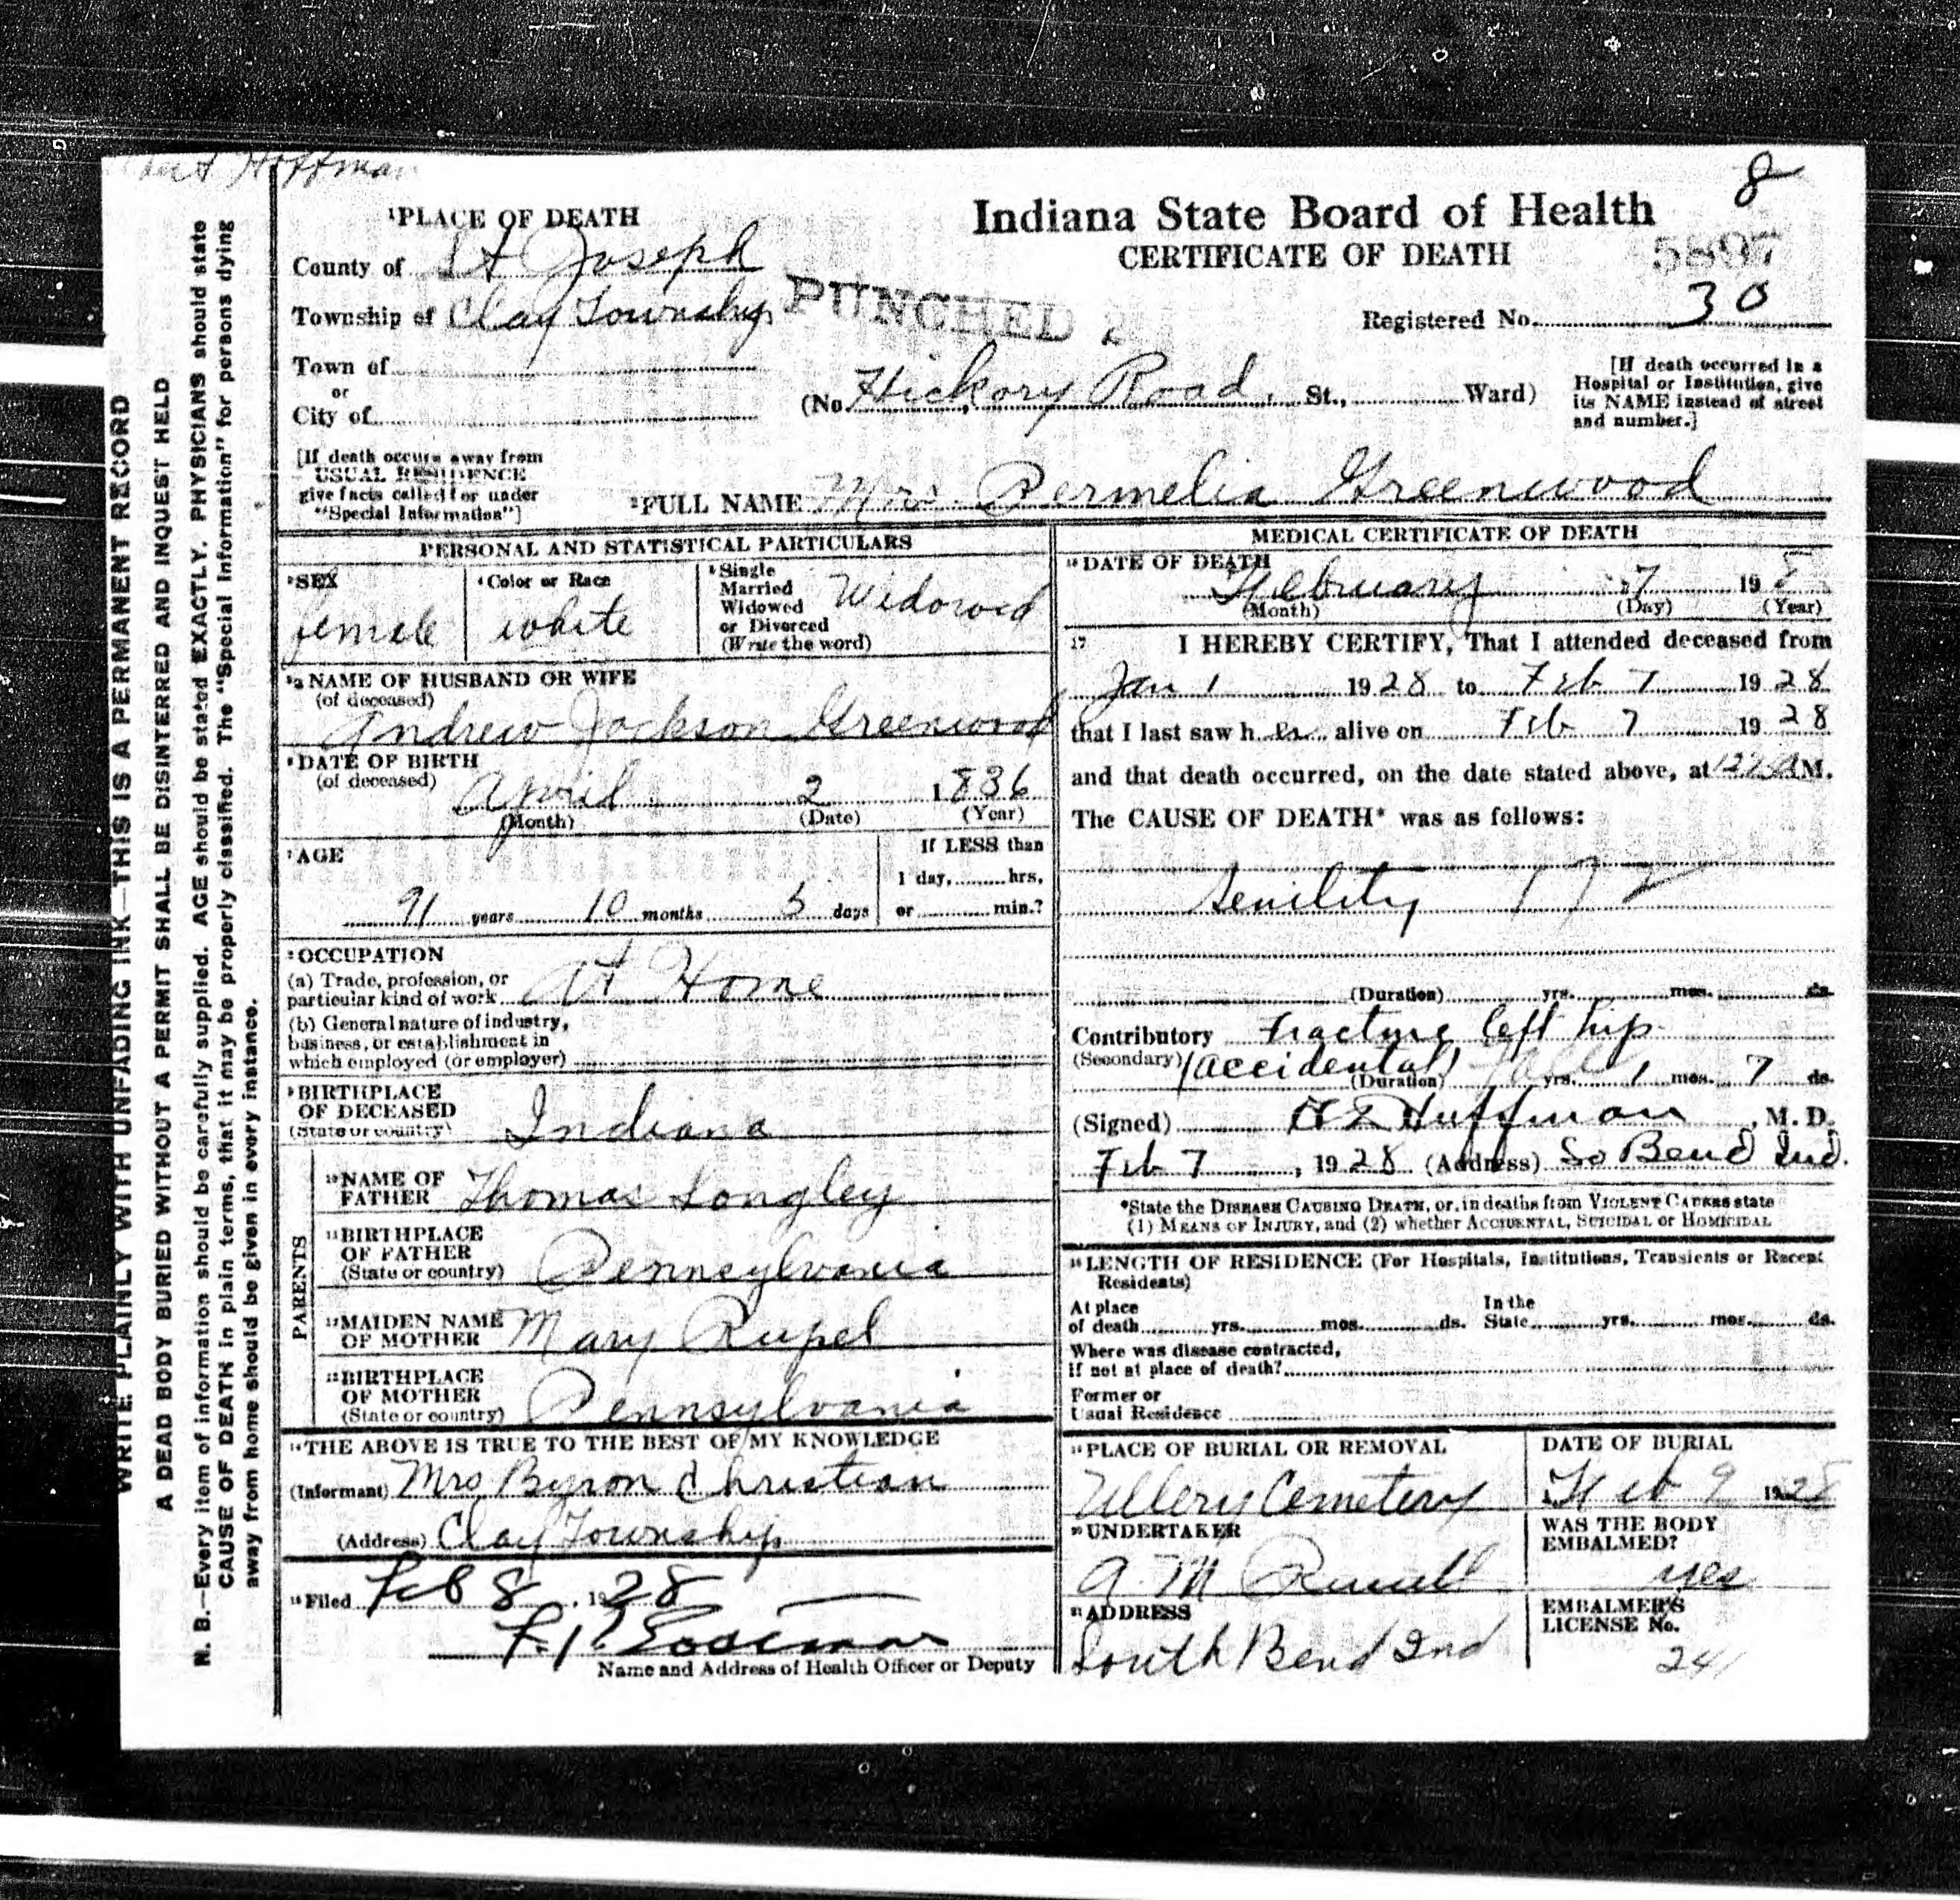 Hoffman
8
¹PLACE OF DEATH
Indiana State Board of Health
CERTIFICATE OF DEATH
5897
County of St Joseph
Township of Clay Township
PUNCHED 2
Registered No. 30
Town of
or
City of
(No. Hickory Road. St., Ward)
[If death occurred in a
Hospital or Institution, give
its NAME instead of street
and number.]
[If death occurs away from
USUAL RESIDENCE
give facts called for under
"Special Information"]
²FULL NAME Mrs. Permelia Greenwood
PERSONAL AND STATISTICAL PARTICULARS
³SEX
female
⁴Color or Race
white
⁵Single
Married
Widowed
or Divorced
(Write the word)
Widowed
NAME OF HUSBAND OR WIFE
(of deceased)
Andrew Jackson Greenwood
⁶DATE OF BIRTH
(of deceased)
April 2 1836
(Month) (Date) (Year)
⁷AGE
91 years 10 months 5 days
If LESS than
1 day, hrs.
or min.?
⁸OCCUPATION
(a) Trade, profession, or
particular kind of work At Home
(b) General nature of industry,
business, or establishment in
which employed (or employer)
⁹BIRTHPLACE
OF DECEASED
(State or country) Indiana
PARENTS
¹⁰NAME OF
FATHER Thomas Longley
¹¹BIRTHPLACE
OF FATHER
(State or country) Pennsylvania
¹²MAIDEN NAME
OF MOTHER Mary Rupel
¹³BIRTHPLACE
OF MOTHER
(State or country) Pennsylvania
¹⁴THE ABOVE IS TRUE TO THE BEST OF MY KNOWLEDGE
(Informant) Mrs Byron Christian
(Address) Clay Township
¹⁵Filed Feb 8, 1928
Name and Address of Health Officer or Deputy
MEDICAL CERTIFICATE OF DEATH
¹⁶DATE OF DEATH
February 7 19 8
(Month) (Day) (Year)
17 I HEREBY CERTIFY, That I attended deceased from
Jan 1 1928 to Feb 7 1928
that I last saw her alive on Feb 7 1928
and that death occurred, on the date stated above, at M.
The CAUSE OF DEATH* was as follows:
Senility
(Duration) yrs. mos. ds.
Contributory Fracture left hip
(Secondary) (accidental) fall
(Duration) yrs. 1 mos. 7 ds.
(Signed) Huffman, M. D.
Feb 7, 1928 (Address) So Bend Ind.
*State the DISEASE CAUSING DEATH, or, in deaths from VIOLENT CAUSES state
(1) MEANS OF INJURY, and (2) whether ACCIDENTAL, SUICIDAL or HOMICIDAL
¹⁸LENGTH OF RESIDENCE (For Hospitals, Institutions, Transients or Recent
Residents)
At place
of death yrs. mos. ds.
In the
State yrs. mos. ds.
Where was disease contracted,
if not at place of death?
Former or
Usual Residence
¹⁹PLACE OF BURIAL OR REMOVAL
Ullery Cemetery
DATE OF BURIAL
Feb 9 1928
²⁰UNDERTAKER
A. M. Russell
WAS THE BODY
EMBALMED?
yes
²¹ADDRESS
South Bend Ind
EMBALMER'S
LICENSE No.
241
WRITE PLAINLY WITH UNFADING INK—THIS IS A PERMANENT RECORD
A DEAD BODY BURIED WITHOUT A PERMIT SHALL BE DISINTERRED AND INQUEST HELD
N. B.—Every item of information should be carefully supplied. AGE should be stated EXACTLY. PHYSICIANS should state
CAUSE OF DEATH in plain terms, that it may be properly classified. The "Special Information" for persons dying
away from home should be given in every instance.